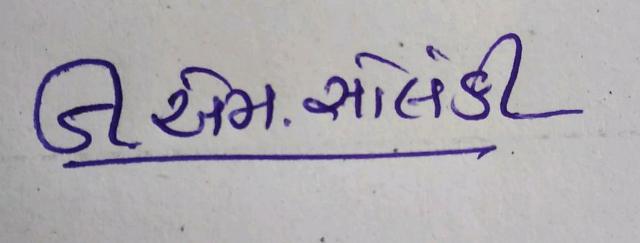 ડી એમ. સોલંકી